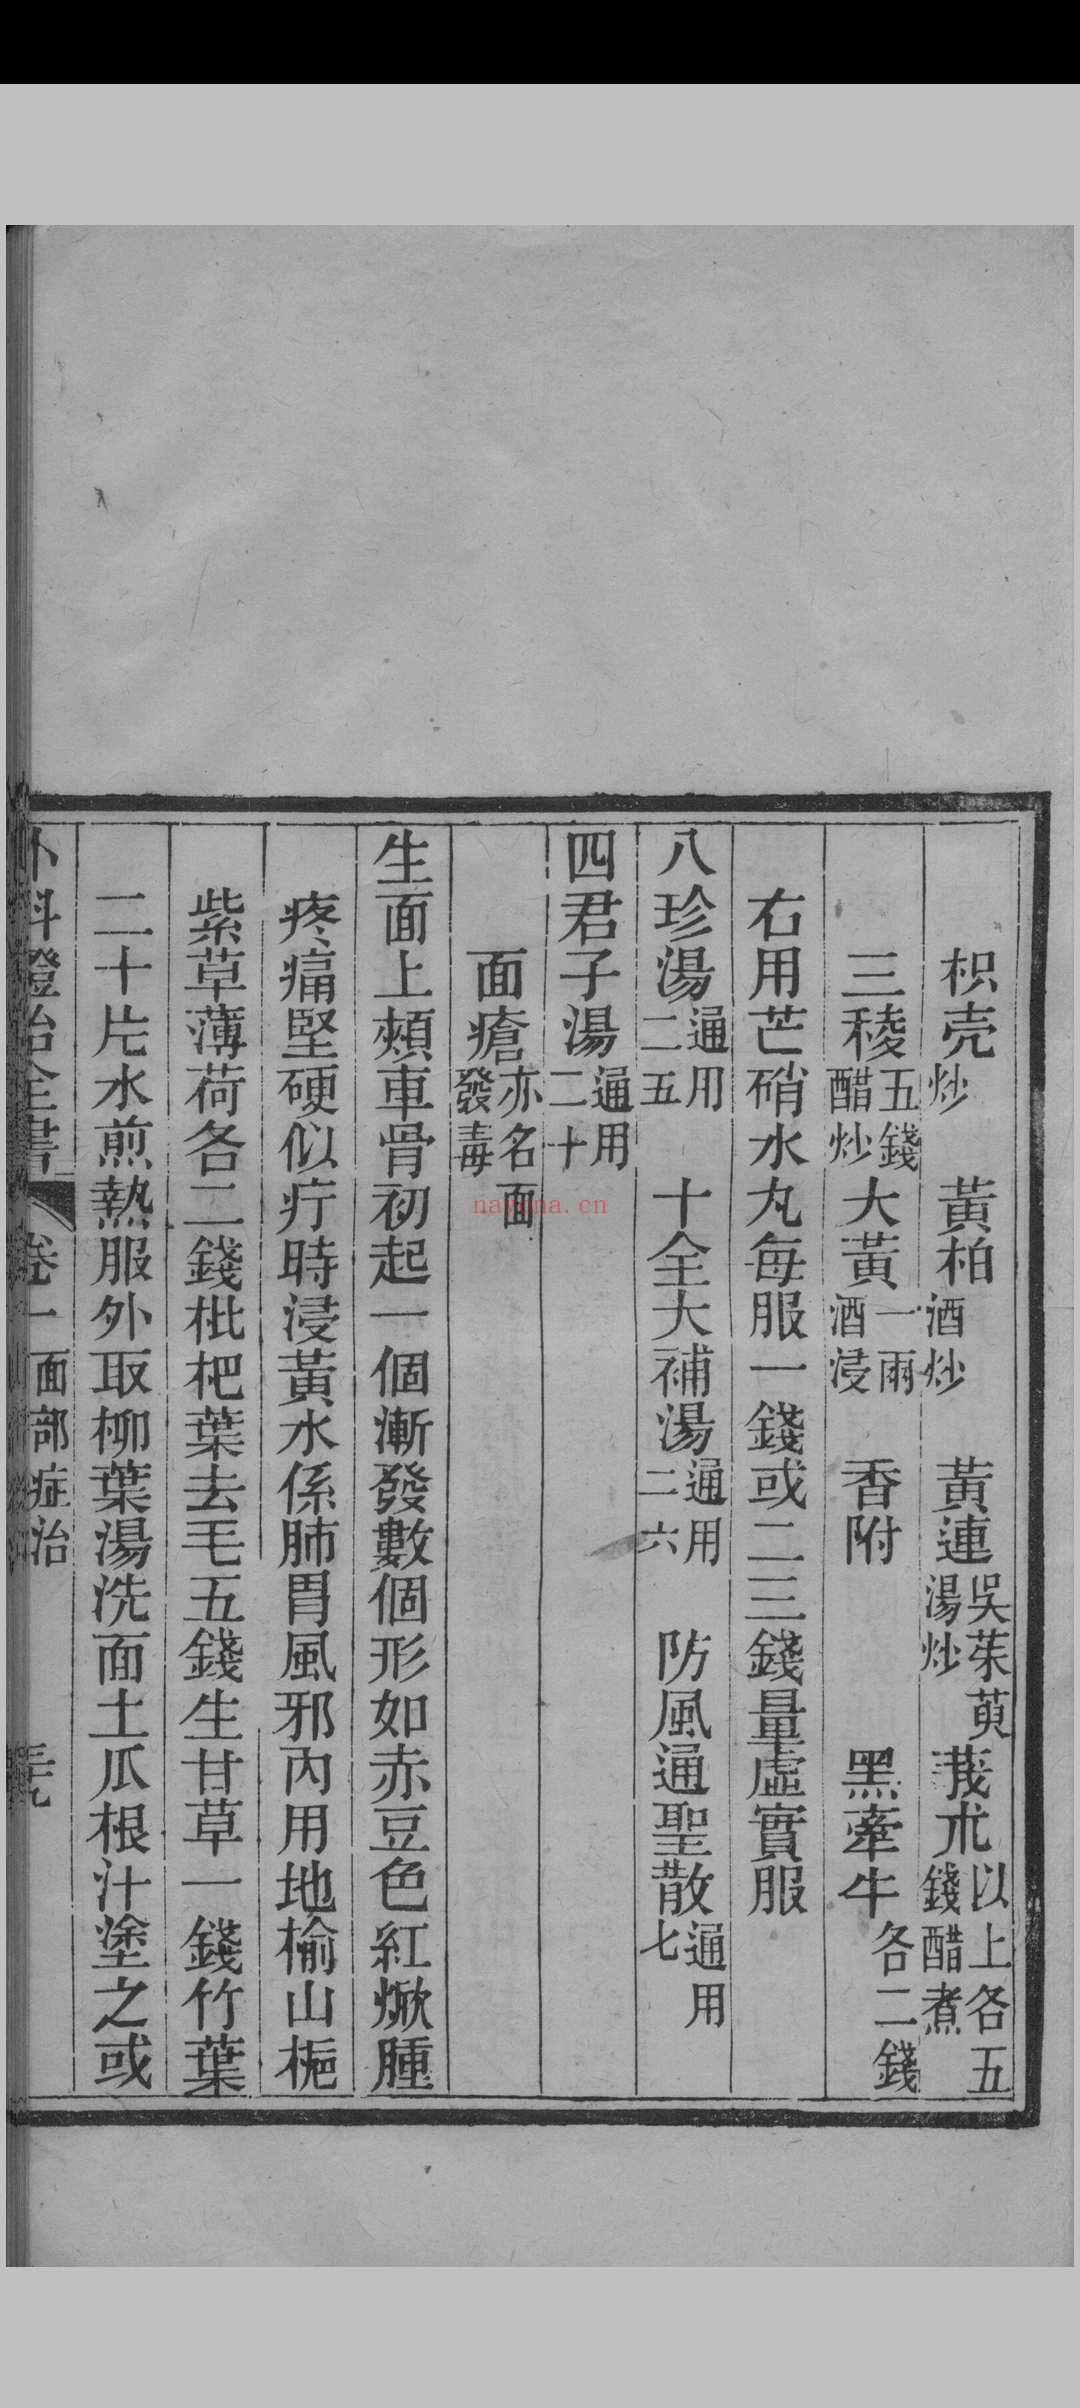 枳壳炒 黃柏酒炒 黃連吳茱萸湯炒 莪朮以上各五錢醋煮
三稜五錢醋炒 大黃一兩酒浸 香附 黑牽牛各二錢
右用芒硝水丸每服一錢或二三錢量虛實服
八珍湯通用二五 十全大補湯通用二六 防風通聖散通用七
四君子湯通用二十
面瘡亦名面發毒
生面上頰車骨初起一個漸發數個形如赤豆色紅焮腫
疼痛堅硬似疔時浸黃水係肺胃風邪內用地榆山梔
紫草薄荷各二錢枇杷葉去毛五錢生甘草一錢竹葉
二十片水煎熱服外取柳葉湯洗面土瓜根汁塗之或
外科證治全書 卷一 面部症治
nayona.cn